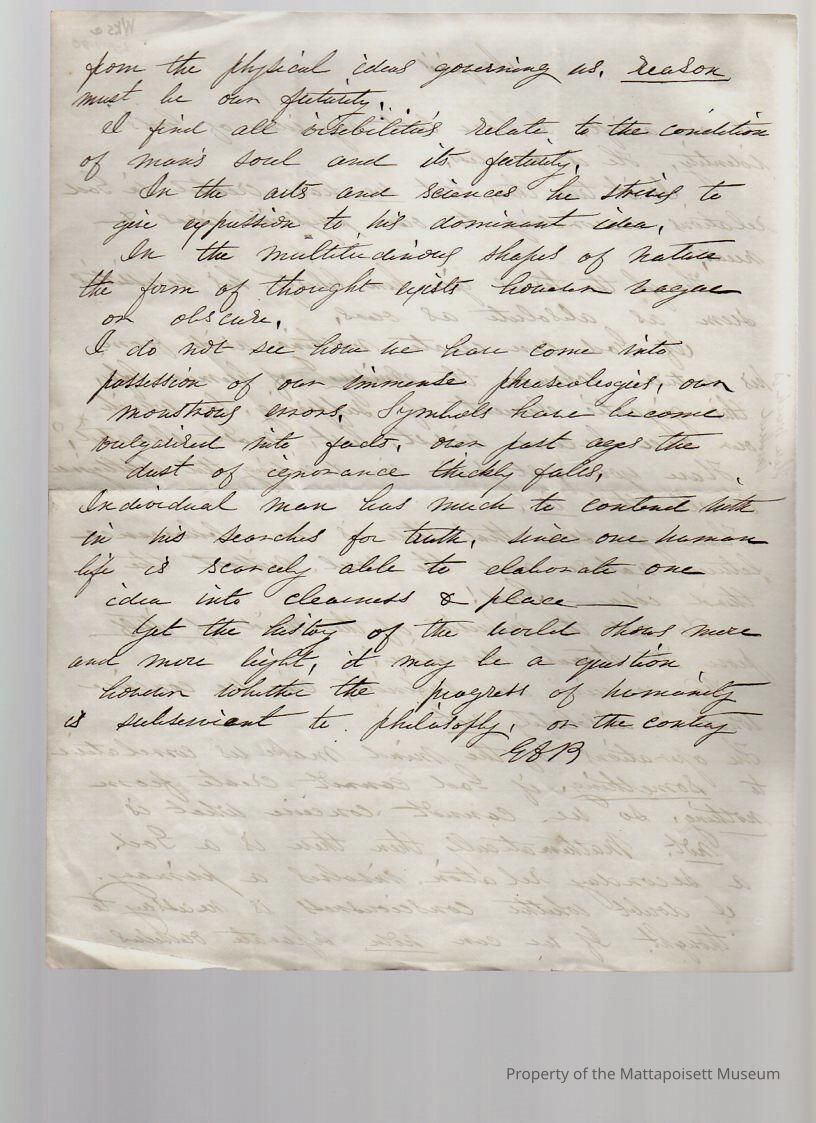 from the physical ideas governing us, reason
must be our futurity.
I find all visibilities relate to the condition
of man's soul and its futurity.
In the arts and sciences he strives to
give expression to his dominant idea,
In the multitudinous shapes of nature
the form of thought exists however vague
or obscure.
I do not see how we have come into
possession of our immense phraseologies, our
monstrous errors. Symbols have become
vulgarized into facts, over past ages the
dust of ignorance thickly falls.
Individual man has much to contend with
in his searches for truth, since one human
life is scarcely able to elaborate one
idea into clearness & place —
Yet the history of the world shows more
and more light, it may be a question
however whether the progress of humanity
is subservient to philosophy, or the contrary
EDB
Property of the Mattapoisett Museum